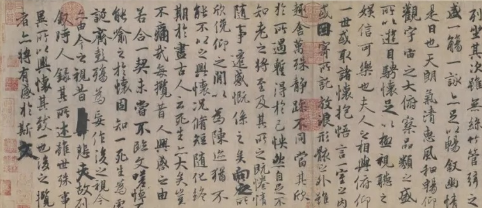 列坐其次雖無絲竹管弦之
盛一觴一詠亦足以暢敘幽情
是日也天朗氣清惠風和暢仰
觀宇宙之大俯察品類之盛
所以遊目騁懷足以極視聽之
娛信可樂也夫人之相與俯仰
一世或取諸懷抱悟言一室之內
或因寄所託放浪形骸之外雖
趣舍萬殊靜躁不同當其欣
於所遇暫得於己怏然自足不
知老之將至及其所之既惓情
隨事遷感慨係之矣向之所
欣俛仰之閒以為陳迹猶不
能不以之興懷況脩短隨化終
期於盡古人云死生亦大矣豈
不痛哉每攬昔人興感之由
若合一契未嘗不臨文嗟悼不
能喻之於懷固知一死生為虛
誕齊彭殤為妄作後之視今
亦由今之視昔悲夫故列
敘時人錄其所述雖世殊事
異所以興懷其致一也後之攬
者亦將有感於斯文